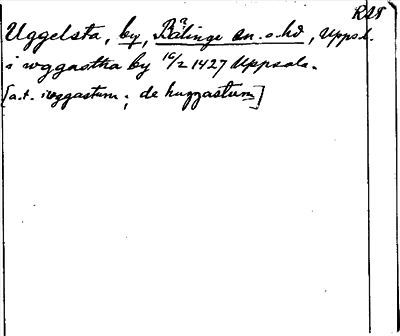 RÄB
Uggelsta, by, Bälinge sn. o. hd, Upps. l.
i wggastha by 16/2 1427 Uppsala.
[a.t. i wggastum; de huggastum]